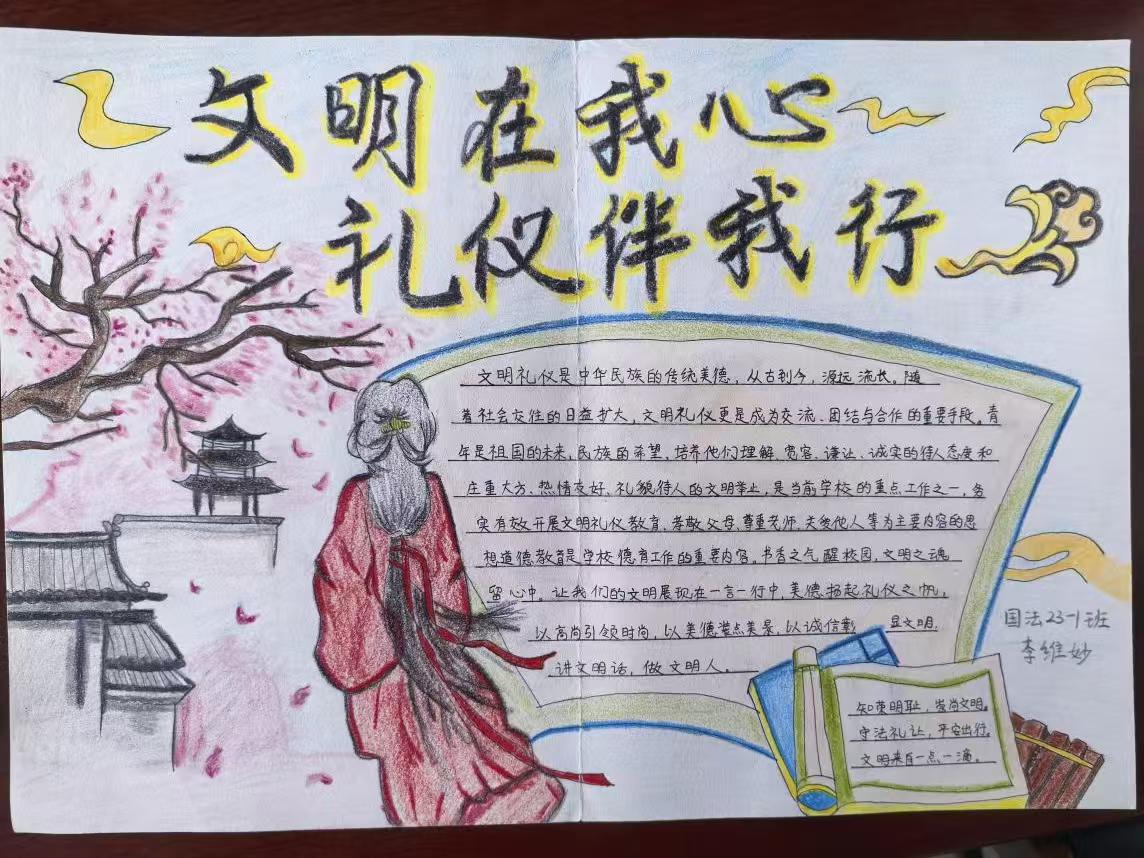 文明在我心
礼仪伴我行
文明礼仪是中华民族的传统美德，从古到今，源远流长。随
着社会交往的日益扩大，文明礼仪更是成为交流、团结与合作的重要手段。青
年是祖国的未来，民族的希望，培养他们理解、宽容、谦让、诚实的待人态度和
庄重大方、热情友好、礼貌待人的文明举止，是当前学校的重点工作之一，务
实有效开展文明礼仪教育、孝敬父母、尊重老师、关爱他人等为主要内容的思
想道德教育是学校德育工作的重要内容。书香之气醒校园，文明之魂
留心中。让我们的文明展现在一言一行中，美德扬起礼仪之帆，
以高尚引领时尚，以美德装点美景，以诚信彰显文明，
讲文明话，做文明人。
国法23-1班
李维妙
知荣明耻，崇尚文明。
守法礼让，平安出行。
文明来自一点一滴。